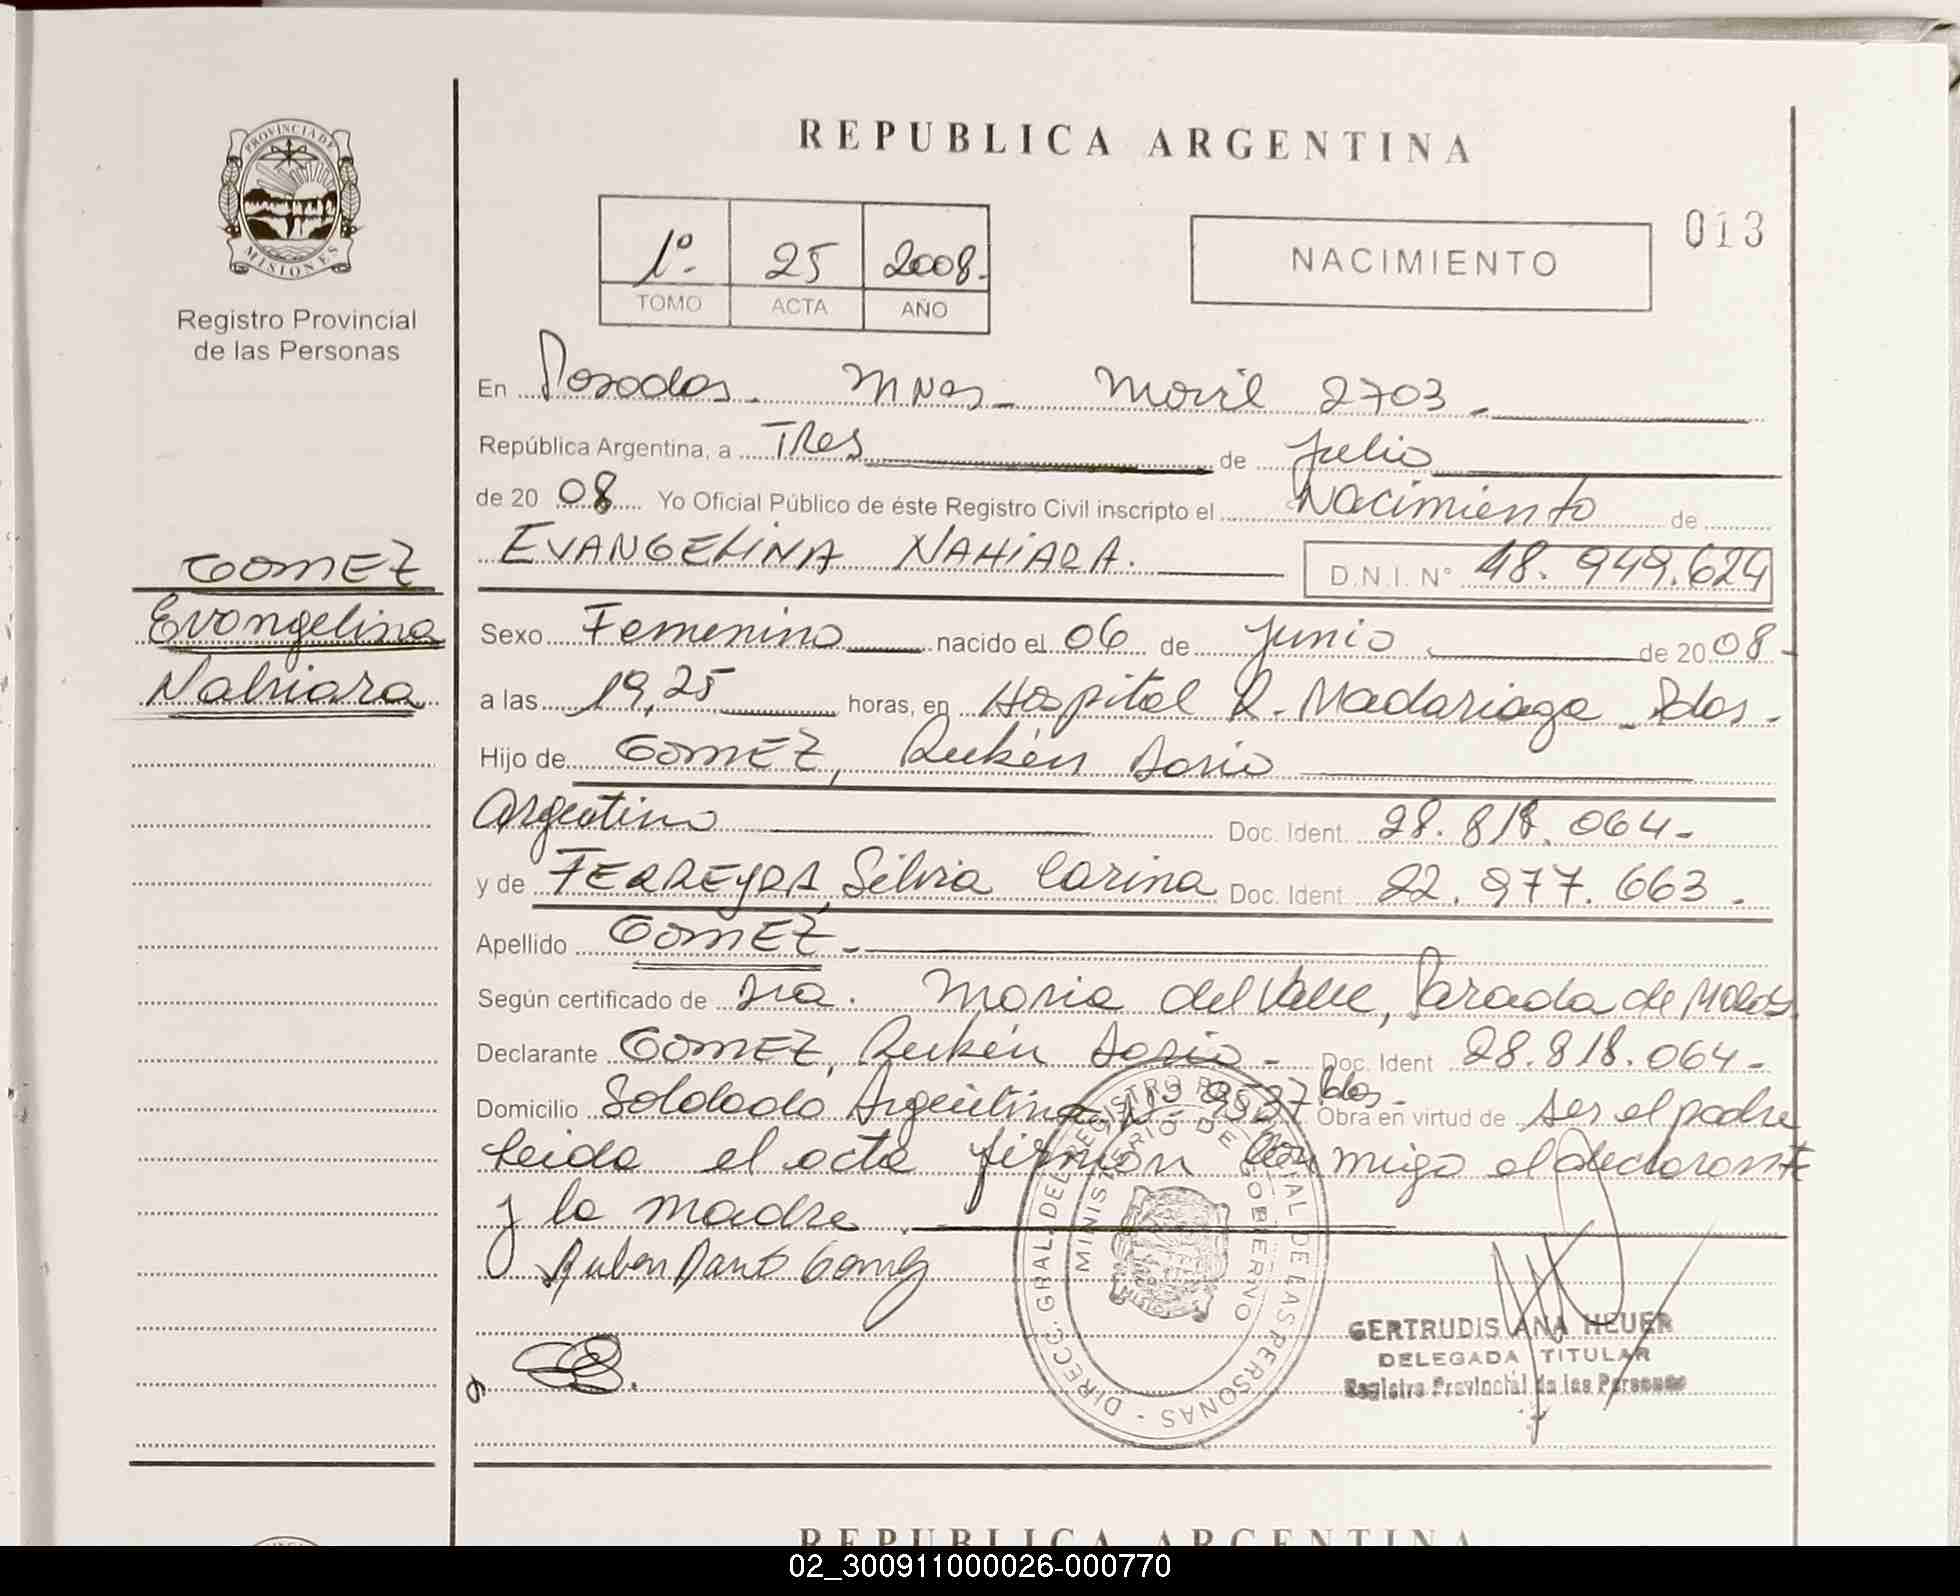 REPUBLICA ARGENTINA
PROVINCIA DE
MISIONES
Registro Provincial
de las Personas
1º.
25
2008.
TOMO
ACTA
AÑO
NACIMIENTO
013
En Posadas. Mnes- Movil 2703.
República Argentina, a Tres de Julio
de 20 08 Yo Oficial Público de éste Registro Civil inscripto el Nacimiento de
GOMEZ
Evangelina
Nahiara
EVANGELINA NAHIARA. D.N.I. Nº 48.949.624
Sexo Femenino nacido el 06 de Junio de 20 08-
a las 19,25 horas, en Hospital R. Madariaga - Pdas.
Hijo de GOMEZ, Rubén Dario
Argentino Doc. Ident. 28.818.064-
y de FERREYRA, Silvia Carina Doc. Ident. 22.977.663.
Apellido GOMEZ.
Según certificado de Dra. Maria del Valle, Parada de
Declarante GOMEZ, Rubén Dario - Doc. Ident 28.818.064-
Domicilio Soldado Argentino Nº Pdas. Obra en virtud de ser el padre
Leida el acta firman conmigo el declarante
y la madre.
Ruben Dario Gomez
DIRECC. GRAL. DEL REGISTRO PROVINCIAL DE LAS PERSONAS
MINISTERIO DE GOBIERNO
GERTRUDIS ANA HEUER
DELEGADA TITULAR
Registro Provincial de las Personas
REPUBLICA ARGENTINA
02_300911000026-000770